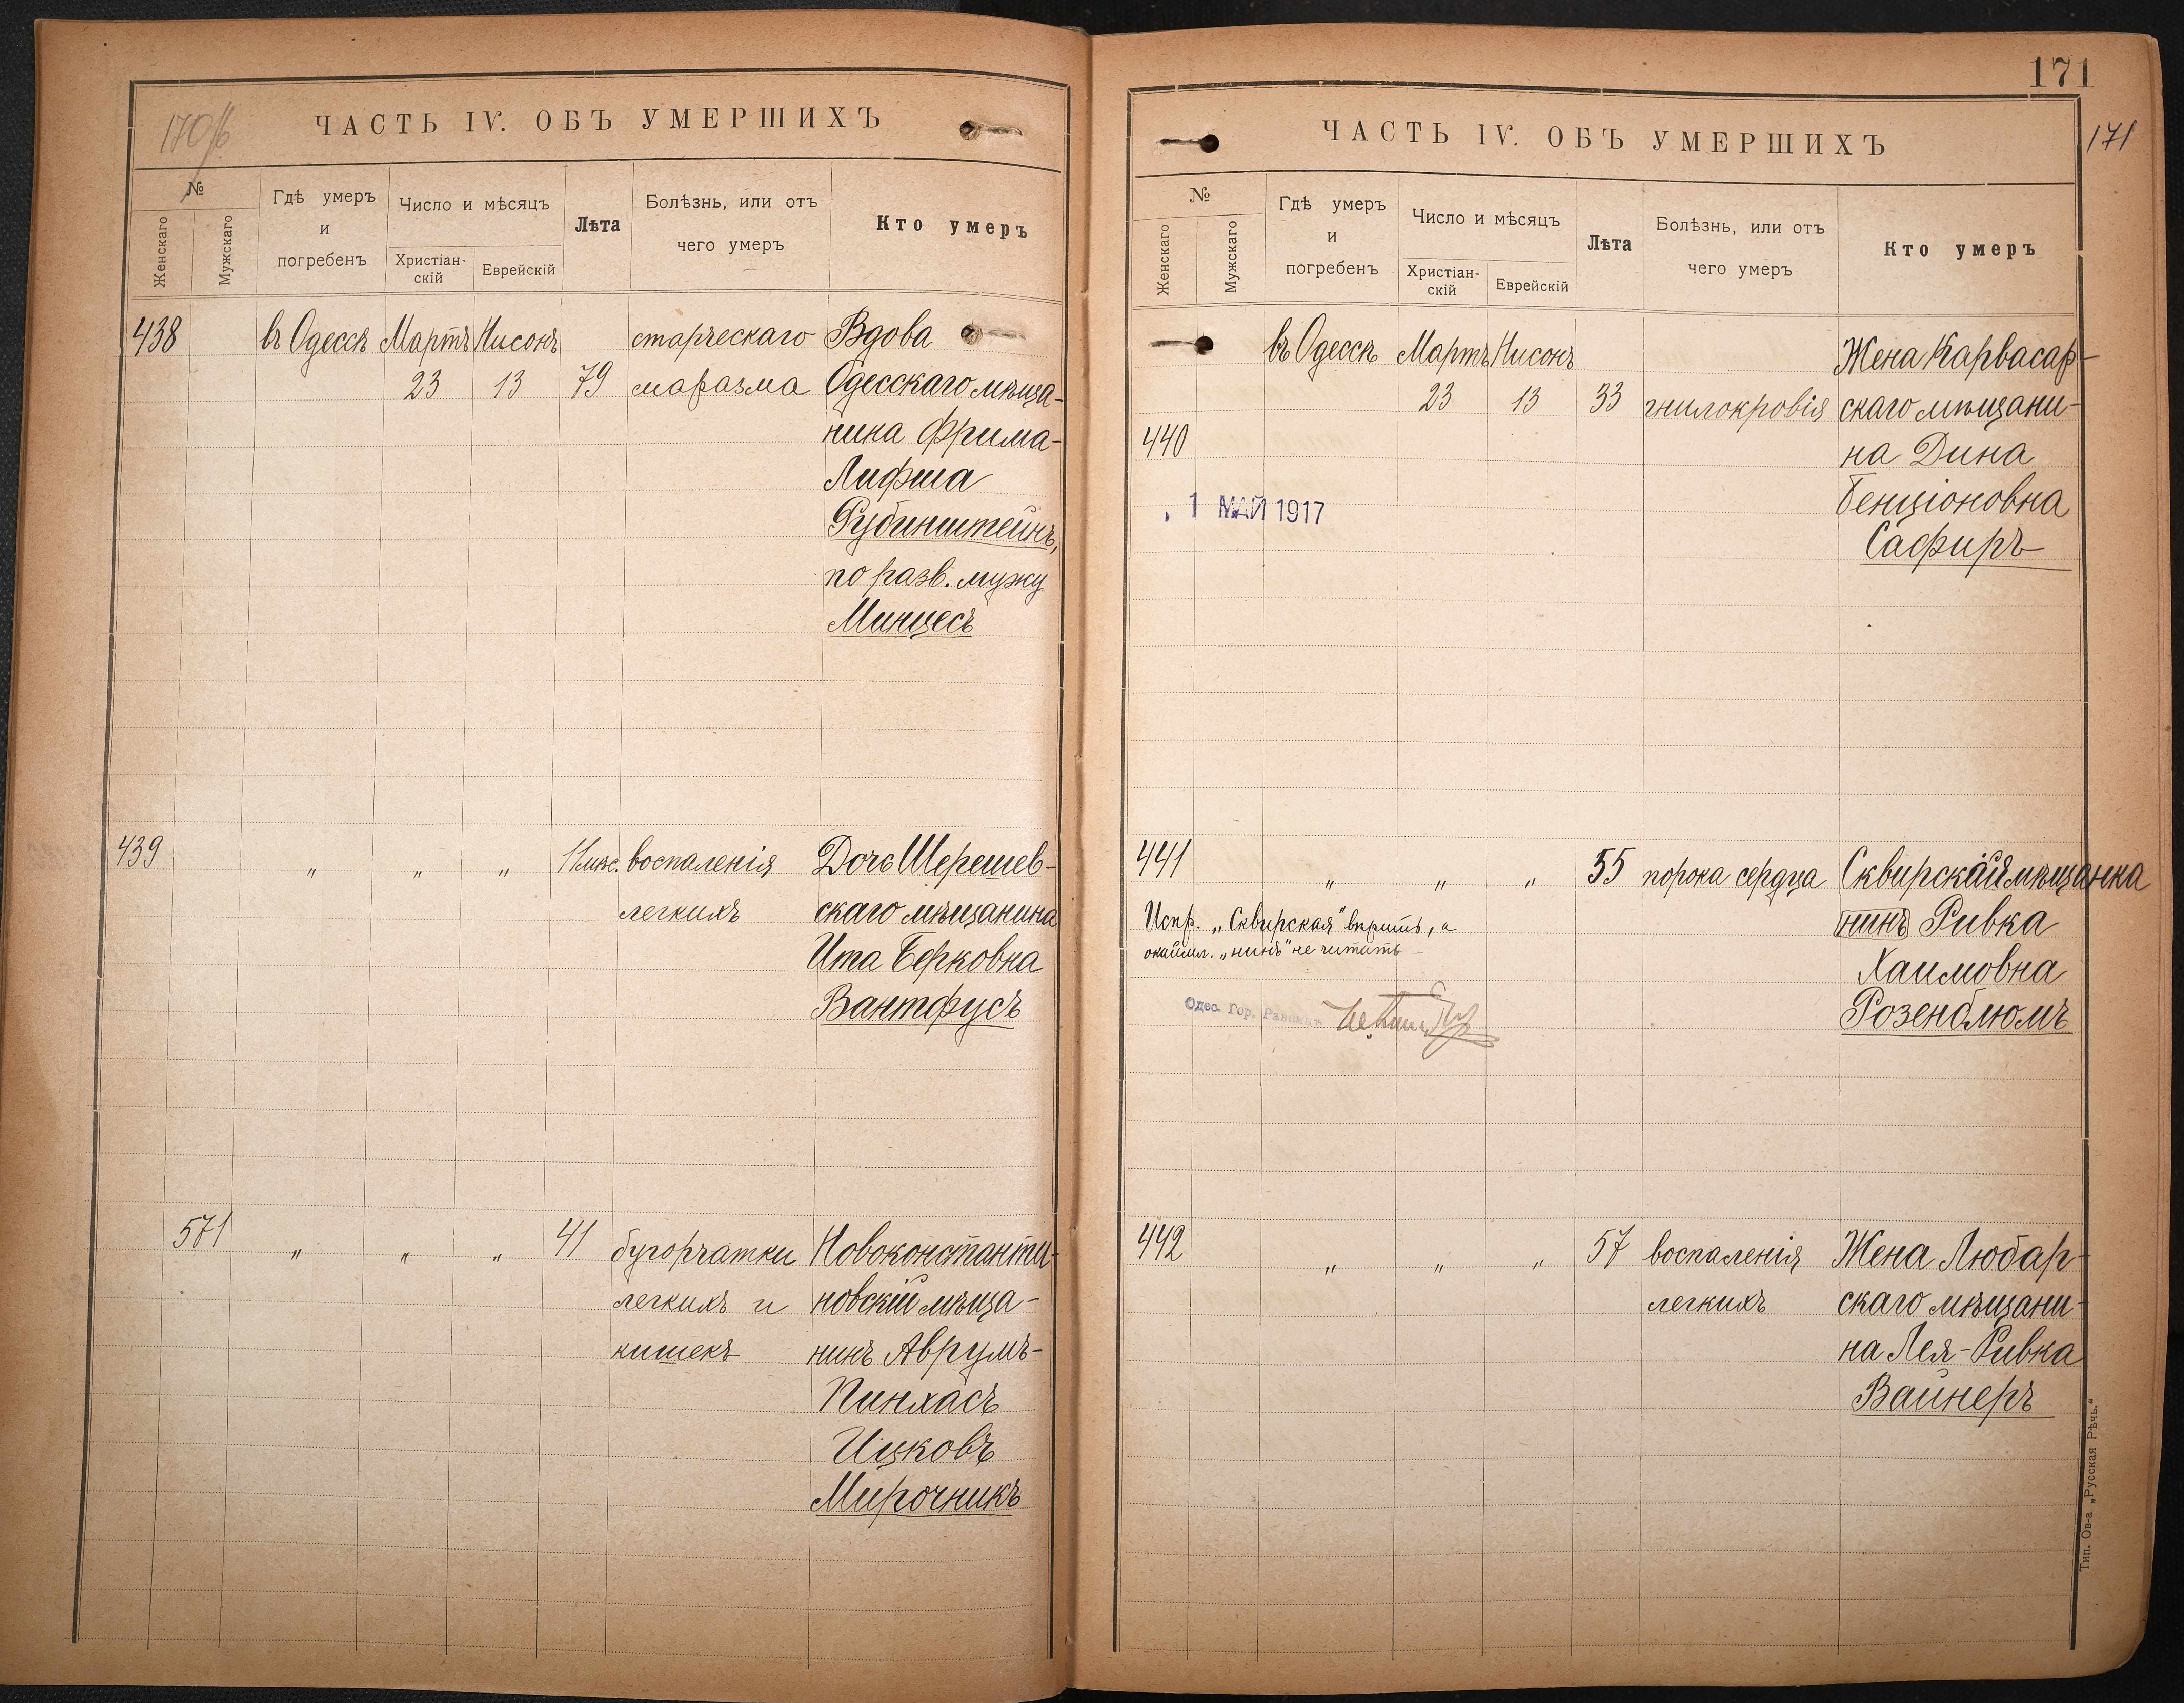 170/б
ЧАСТЬ IV. ОБЪ УМЕРШИХЪ
№
Женскаго
Мужскаго
Гдѣ умеръ
и
погребенъ
Число и мѣсяцъ
Христіан-
скій
Еврейскій
Лѣта
Болѣзнь, или отъ
чего умеръ
Кто умеръ
438 въ Одессѣ Мартъ Нисонъ старческаго Вдова
23 13 79 маразма Одесскаго мѣща-
нина Фрима-
Лифша
Рубинштейнъ,
по разв. мужу
Минцесъ
439 " " " 11 мѣс. воспаленія Дочь Шерешев-
легкихъ скаго мѣщанина
Ита Берковна
Вантфусъ
571 " " " 41 бугорчатки Новоконстанти-
легкихъ и новскій мѣща-
кишекъ нинъ Аврумъ-
Пинхасъ
Ицковъ
Мирочникъ
171
171
ЧАСТЬ IV. ОБЪ УМЕРШИХЪ
№
Женскаго
Мужскаго
Гдѣ умеръ
и
погребенъ
Число и мѣсяцъ
Христіан-
скій
Еврейскій
Лѣта
Болѣзнь, или отъ
чего умеръ
Кто умеръ
въ Одессѣ Мартъ Нисонъ Жена Карвасар-
23 13 33 гнилокровія скаго мѣщани-
440 на Дина
1 МАЙ 1917 Бенціоновна
Сафиръ
441 " " " 55 порока сердца Сквирская мѣщанка
Испр. „Сквирская" вѣрить, а нинъ Ривка
окаймл. „нинъ" не читать – Хаимовна
Одес. Гор. Раввинъ Розенблюмъ
442 " " " 57 воспаленія Жена Любар-
легкихъ скаго мѣщани-
на Лея-Ривка
Вайнеръ
Тип. Ов-а „Русская Рѣчь."